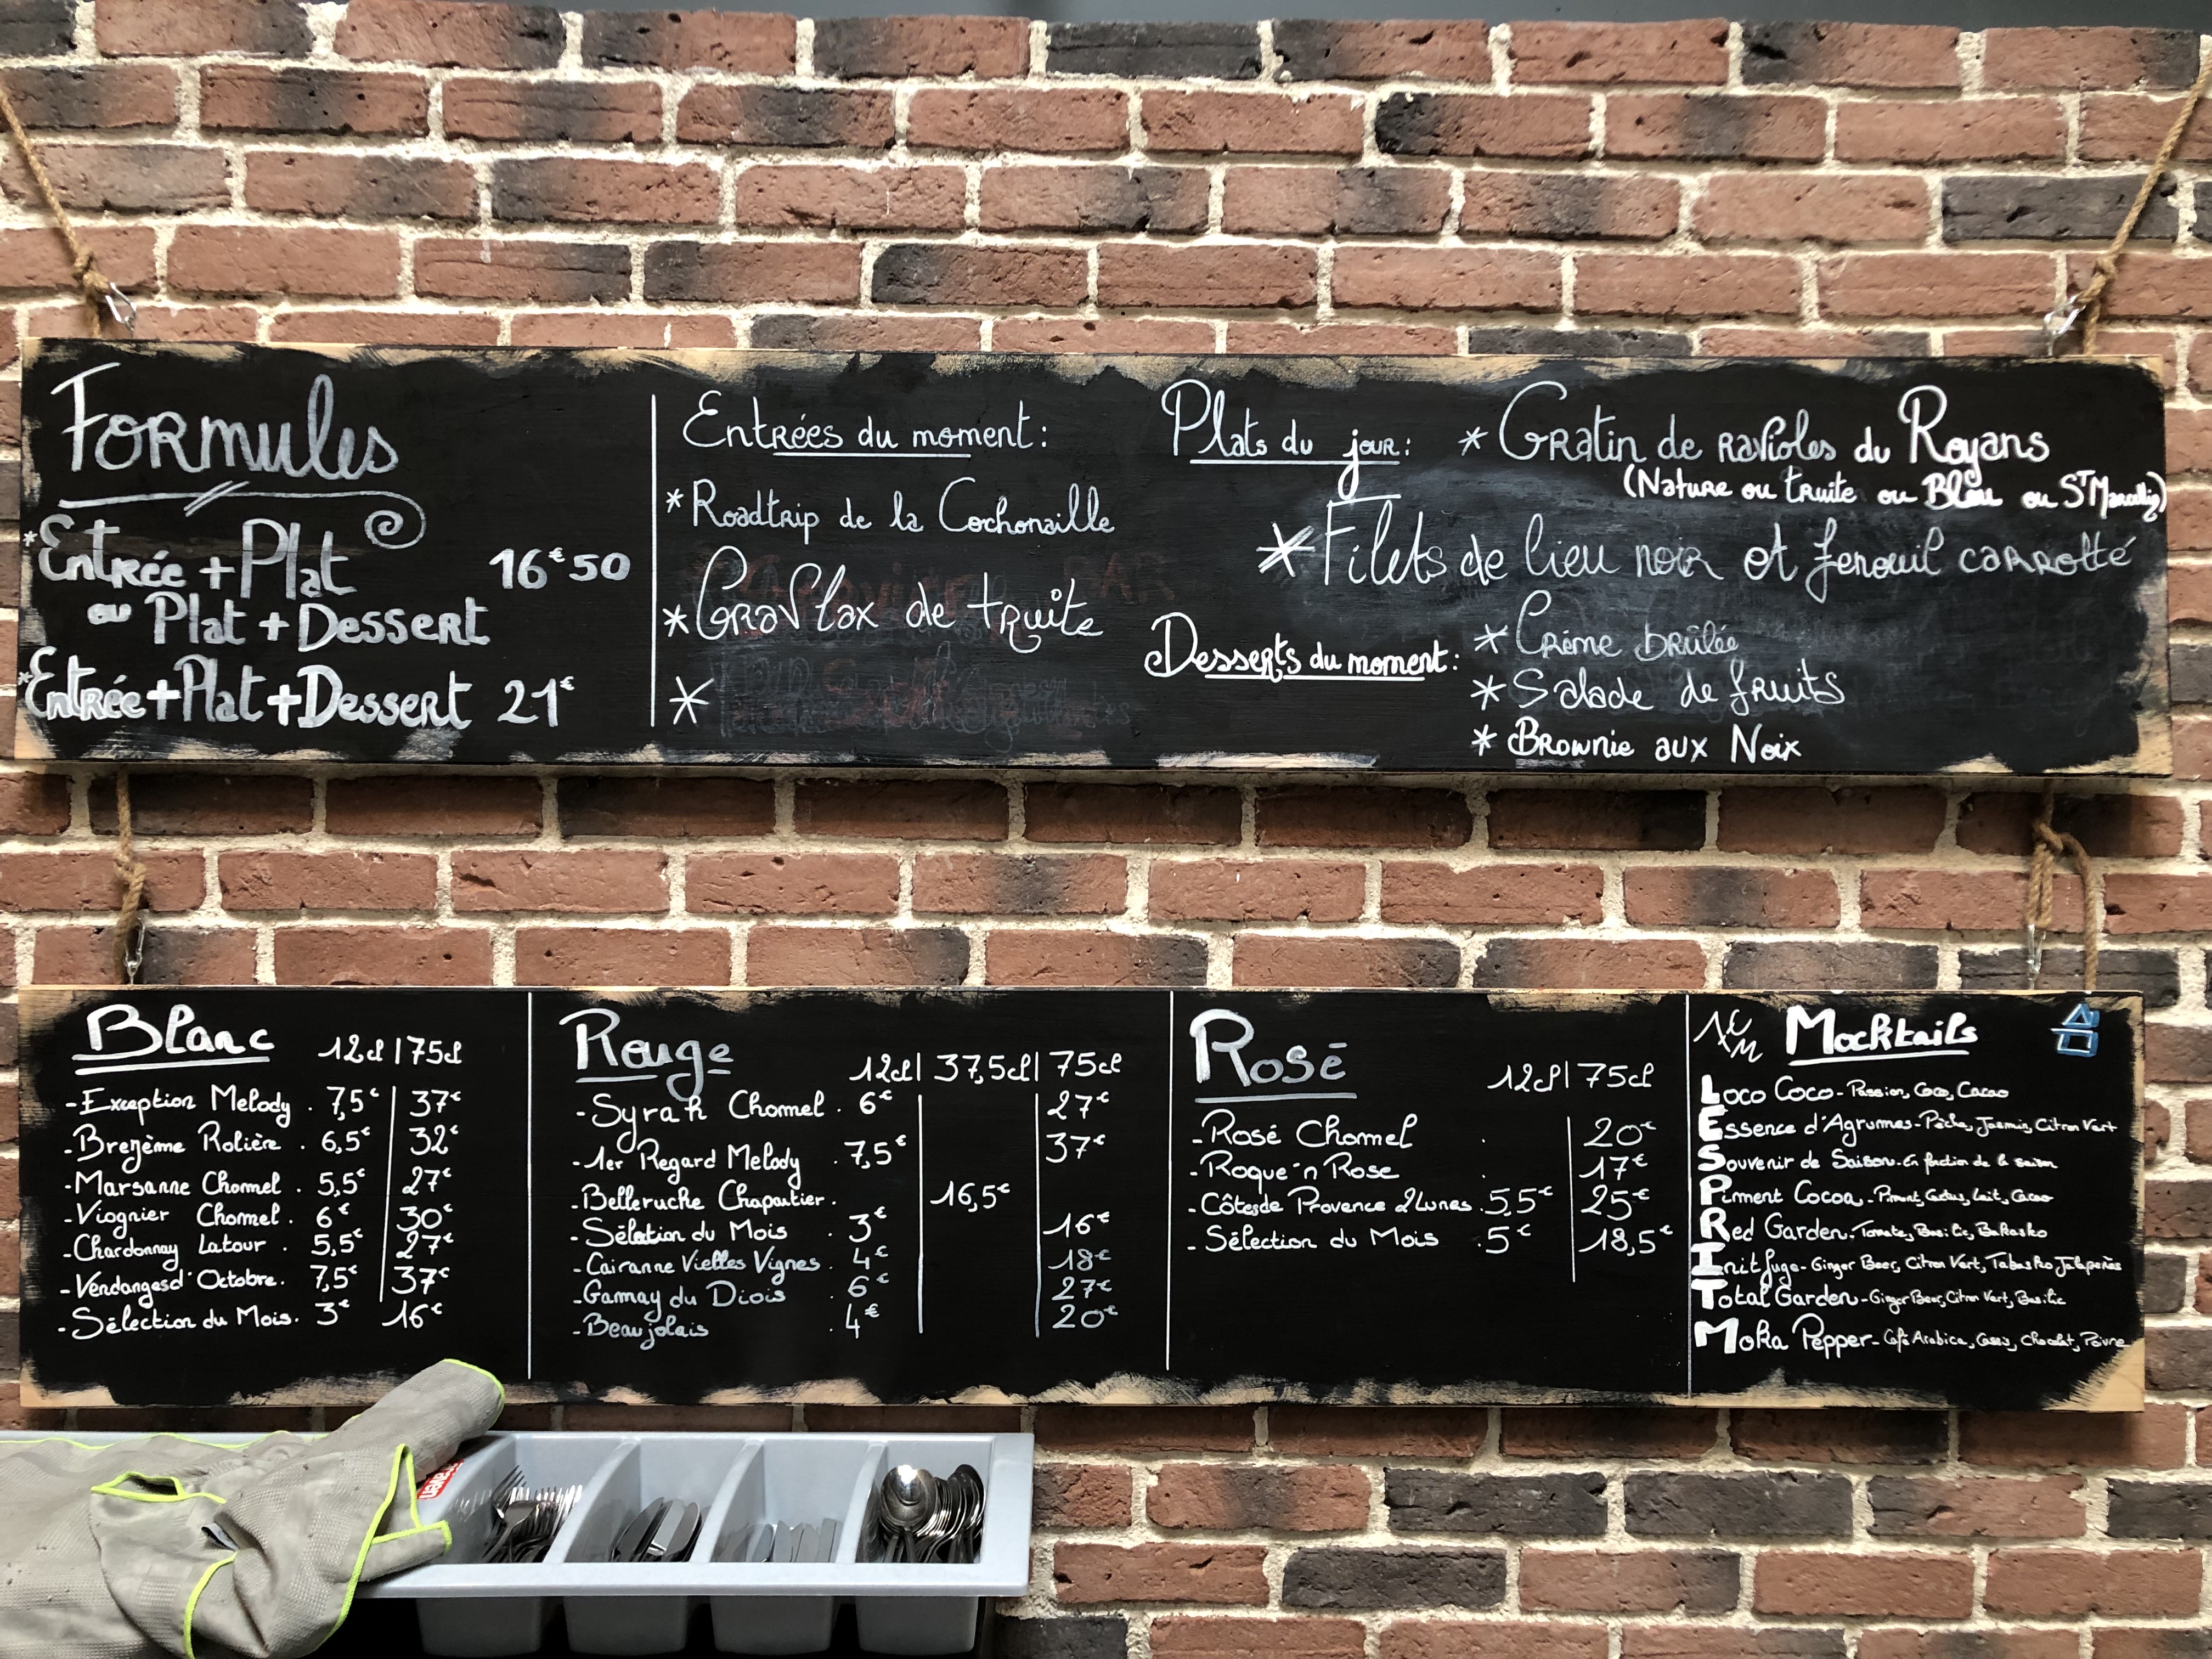 Formules
*Entrée + Plat 16€50
ou Plat + Dessert
*Entrée+Plat+Dessert 21€
Entrées du moment:
*Roadtrip de la Cochonaille
*Gravlax de truite
*
Plats du jour: * Gratin de ravioles du Royans
(Nature ou truite ou Bleu ou ST Marcellin)
*Filets de lieu noir et fenouil carrotté
Desserts du moment: * Crème brûlée
* Salade de fruits
* Brownie aux Noix
Blanc 12cl | 75cl
-Exception Melody . 7,5€ 37€
-Brezème Rolière . 6,5€ 32€
-Marsanne Chomel . 5,5€ 27€
-Viognier Chomel . 6€ 30€
-Chardonnay Latour . 5,5€ 27€
-Vendanges d'Octobre . 7,5€ 37€
-Sélection du Mois . 3€ 16€
Rouge 12cl | 37,5cl | 75cl
-Syrah Chomel . 6€ 27€
-1er Regard Melody . 7,5€ 37€
-Belleruche Chapoutier . 16,5€
-Sélection du Mois . 3€ 16€
-Cairanne Vielles Vignes . 4€ 18€
-Gamay du Diois . 6€ 27€
-Beaujolais . 4€ 20€
Rosé 12cl | 75cl
-Rosé Chomel . 20€
-Roque'n Rose . 17€
-Côtes de Provence 2Lunes . 5,5€ 25€
-Sélection du Mois . 5€ 18,5€
Mocktails
Loco Coco - Passion, Coco, Cacao
Essence d'Agrumes - Pêche, Jasmin, Citron Vert
Souvenir de Saison - En fonction de la saison
Piment Cocoa - Piment, Cactus, Lait, Cacao
Red Garden - Tomate, Basilic,
Ignifuge - Ginger Beer, Citron Vert, Tabasko Jalapeños
Total Garden - Ginger Beer, Citron Vert, Basilic
Moka Pepper - Café Arabica, Cassis, Chocolat, Poivre